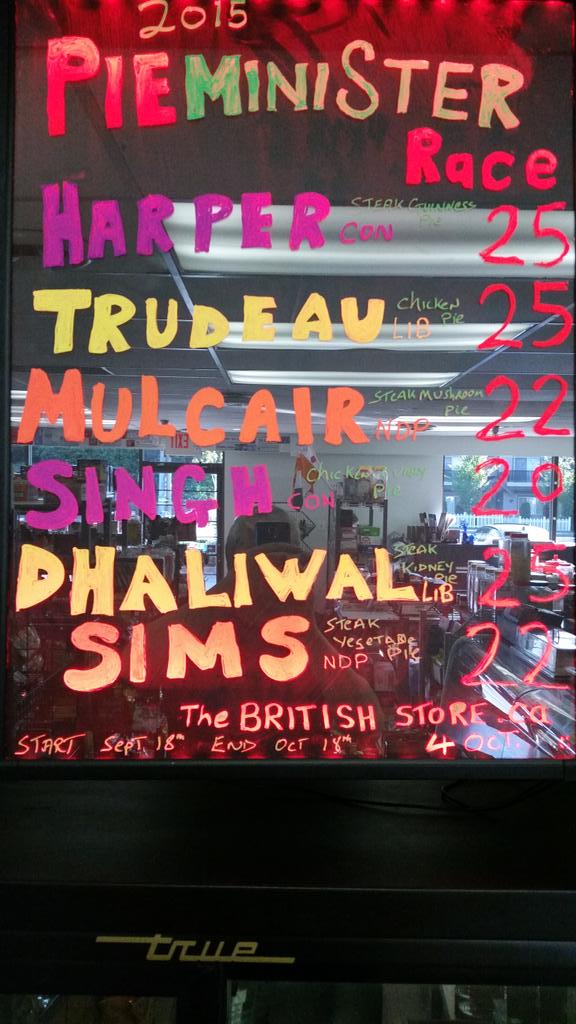 2015
PIEMINISTER
Race
HARPER CON STEAK GUINNESS Pie 25
TRUDEAU LIB Chicken Pie 25
MULCAIR NDP STEAK MUSHROOM PIE 22
SINGH CON Chicken Curry Pie 20
DHALIWAL LIB STEAK KIDNEY PIE 25
SIMS NDP STEAK Vegetable Pie 22
The BRITISH STORE.ca
START Sept 18th END OCT 18th 4 OCT.
EXIT
true